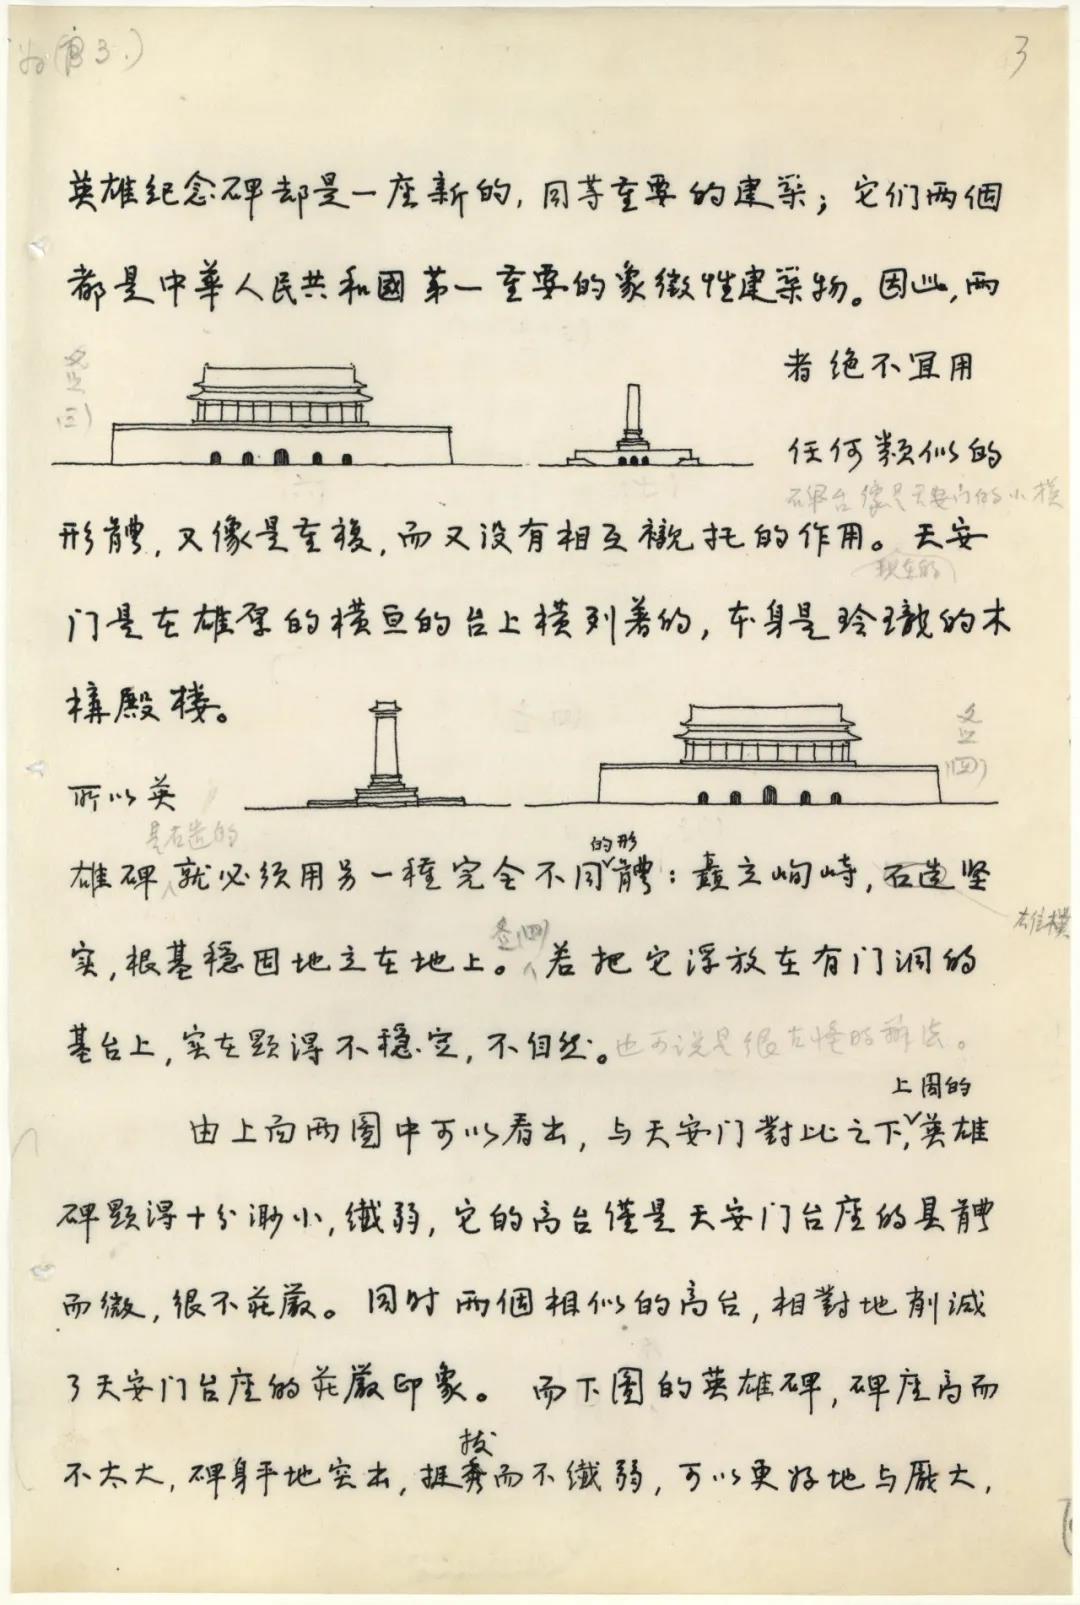 3
英雄纪念碑却是一座新的，同等重要的建築；它们两個
都是中華人民共和國第一重要的象徵性建築物。因此，两
者绝不宜用
任何類似的
碑台像是天安门的小模
形體，又像是重複，而又没有相互襯托的作用。天安
现在的
门是在雄厚的横亘的台上横列着的，本身是玲瓏的木
構殿楼。
所以英
是石造的
的形
雄碑就必须用另一種完全不同體：矗立峋峙，石造坚
雄樸
实，根基穩固地立在地上。若把它浮放在有门洞的
基台上，实在顕得不穩定，不自然。也可说是很古怪的辦法。
上圖的
由上面两圖中可以看出，与天安门對比之下，英雄
碑顕得十分渺小，纖弱，它的高台僅是天安门台座的具體
而微，很不莊嚴。同时两個相似的高台，相對地削減
了天安门台座的莊嚴印象。而下圖的英雄碑，碑座高而
拔
不太大，碑身平地突出，挺秀而不纖弱，可以更好地与厖大，